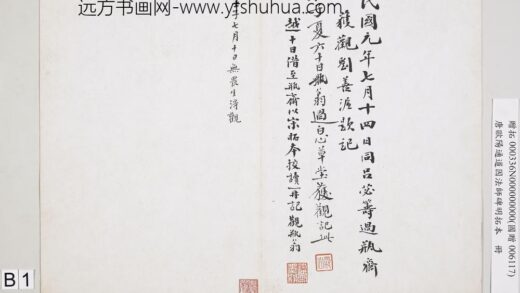 远方书画网-www.yfshuhua.com
民國元年七月十四日同呂苾籌過瓶齋
獲觀劉善渥題記
夏六十日瓶翁過自心草堂獲觀記此
越十日谐至瓶齋以宋拓本挍讀一再記觀瓶翁
年七月十日無畏生淨觀
贈拓 000336N000000000(國贈 006117)
唐歐陽通道因法師碑明拓本 冊
B 1